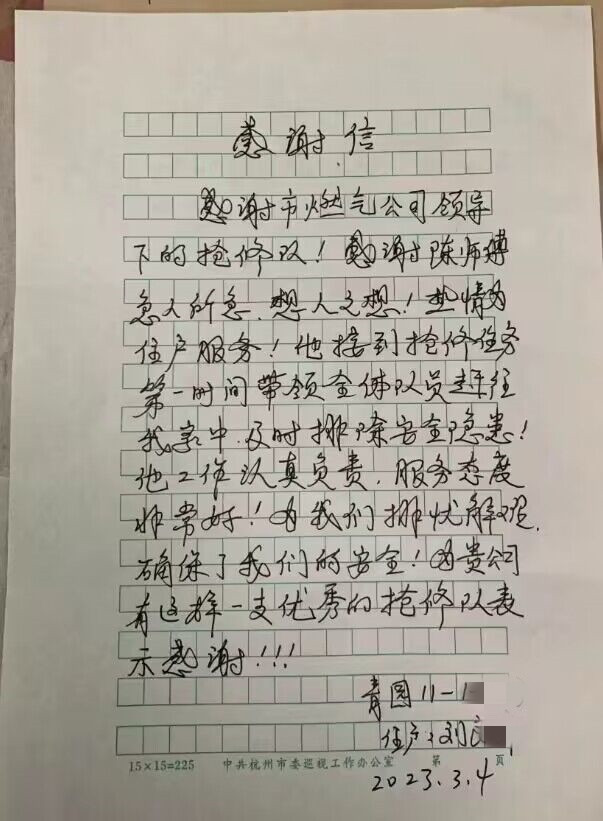 感谢信
感谢市燃气公司领导
下的抢修队！感谢陈师傅
急人所急，想人之想！热情为
住户服务！他接到抢修任务
第一时间带领全体队员赶往
我家中，及时排除安全隐患！
他工作认真负责，服务态度
非常好！为我们排忧解难，
确保了我们的安全！为贵公司
有这样一支优秀的抢修队表
示感谢！！！
青园11-1
住户：刘
15×15=225 中共杭州市委巡视工作办公室 第 页
2023.3.4